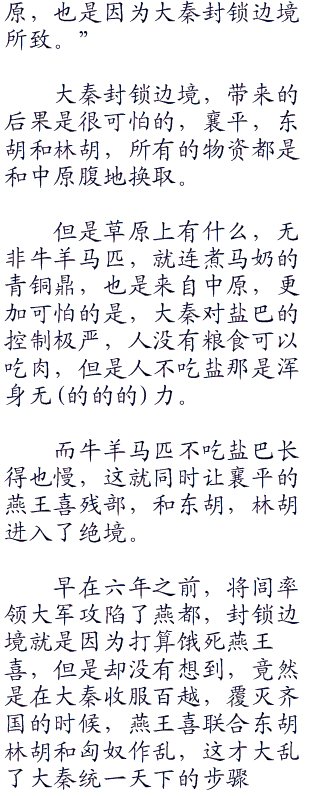 原，也是因为大秦封锁边境
所致。”
大秦封锁边境，带来的
后果是很可怕的，襄平，东
胡和林胡，所有的物资都是
和中原腹地换取。
但是草原上有什么，无
非牛羊马匹，就连煮马奶的
青铜鼎，也是来自中原，更
加可怕的是，大秦对盐巴的
控制极严，人没有粮食可以
吃肉，但是人不吃盐那是浑
身无(的的的)力。
而牛羊马匹不吃盐巴长
得也慢，这就同时让襄平的
燕王喜残部，和东胡，林胡
进入了绝境。
早在六年之前，将闾率
领大军攻陷了燕都，封锁边
境就是因为打算饿死燕王
喜，但是却没有想到，竟然
是在大秦收服百越，覆灭齐
国的时候，燕王喜联合东胡
林胡和匈奴作乱，这才大乱
了大秦统一天下的步骤